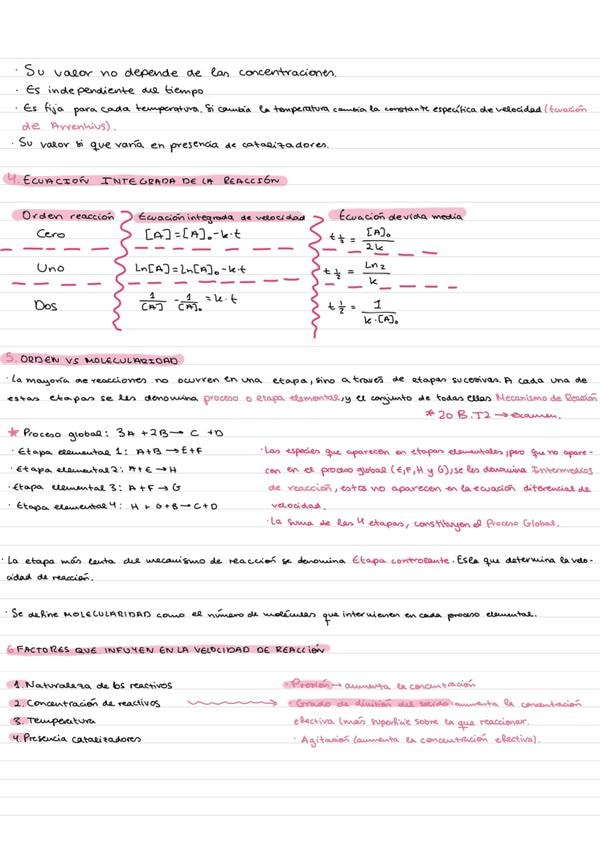 · Su valor no depende de las concentraciones.
· Es independiente del tiempo
· Es fija para cada temperatura. Si cambia la temperatura cambia la constante específica de velocidad (Ecuación
de Arrenhius).
· Su valor si que varía en presencia de catalizadores.
4. ECUACIÓN INTEGRADA DE LA REACCIÓN
Orden reacción Ecuación integrada de velocidad Ecuación de vida media
Cero [A]=[A]₀-k·t t½ = [A]₀/2k
Uno Ln[A]=Ln[A]₀-k·t t½ = Ln2/k
Dos 1/[A] - 1/[A]₀ = k·t t½ = 1/k·[A]₀
5. ORDEN VS MOLECULARIDAD
· La mayoría de reacciones no ocurren en una etapa, sino a través de etapas sucesivas. A cada una de
estas etapas se les denomina proceso o etapa elemental, y el conjunto de todas ellas Mecanismo de Reacción
* 20 B.T2 → examen.
★ Proceso global: 3A + 2B → C + D
· Etapa elemental 1: A+B → E+F
· Etapa elemental 2: A+E → H
· Etapa elemental 3: A+F → G
· Etapa elemental 4: H + G + B → C + D
· Las especies que aparecen en etapas elementales, pero que no apare-
cen en el proceso global (E, F, H y G), se les denomina Intermedios
de reacción, estos no aparecen en la ecuación diferencial de
velocidad.
· La suma de las 4 etapas, constituyen el Proceso Global.
· La etapa más lenta del mecanismo de reacción se denomina Etapa controlante. Es la que determina la velo-
cidad de reacción.
· Se define MOLECULARIDAD como el número de moléculas que intervienen en cada proceso elemental.
6. FACTORES QUE INFUYEN EN LA VELOCIDAD DE REACCIÓN
1. Naturaleza de los reactivos
2. Concentración de reactivos
3. Temperatura
4. Presencia catalizadores
· Presión → aumenta la concentración
· Grado de división del sólido: aumenta la concentración
efectiva (más superficie sobre la que reaccionar.
· Agitación (aumenta la concentración efectiva).